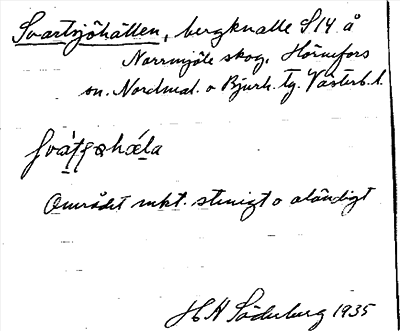 Svartsjöhällen, bergknalle S14 å
Norrmjöle skog, Hörnefors
sn. Nordmal. o Bjurh. tg. Västerb. l.
Området mkt. stenigt o oländigt
H H Söderberg 1935